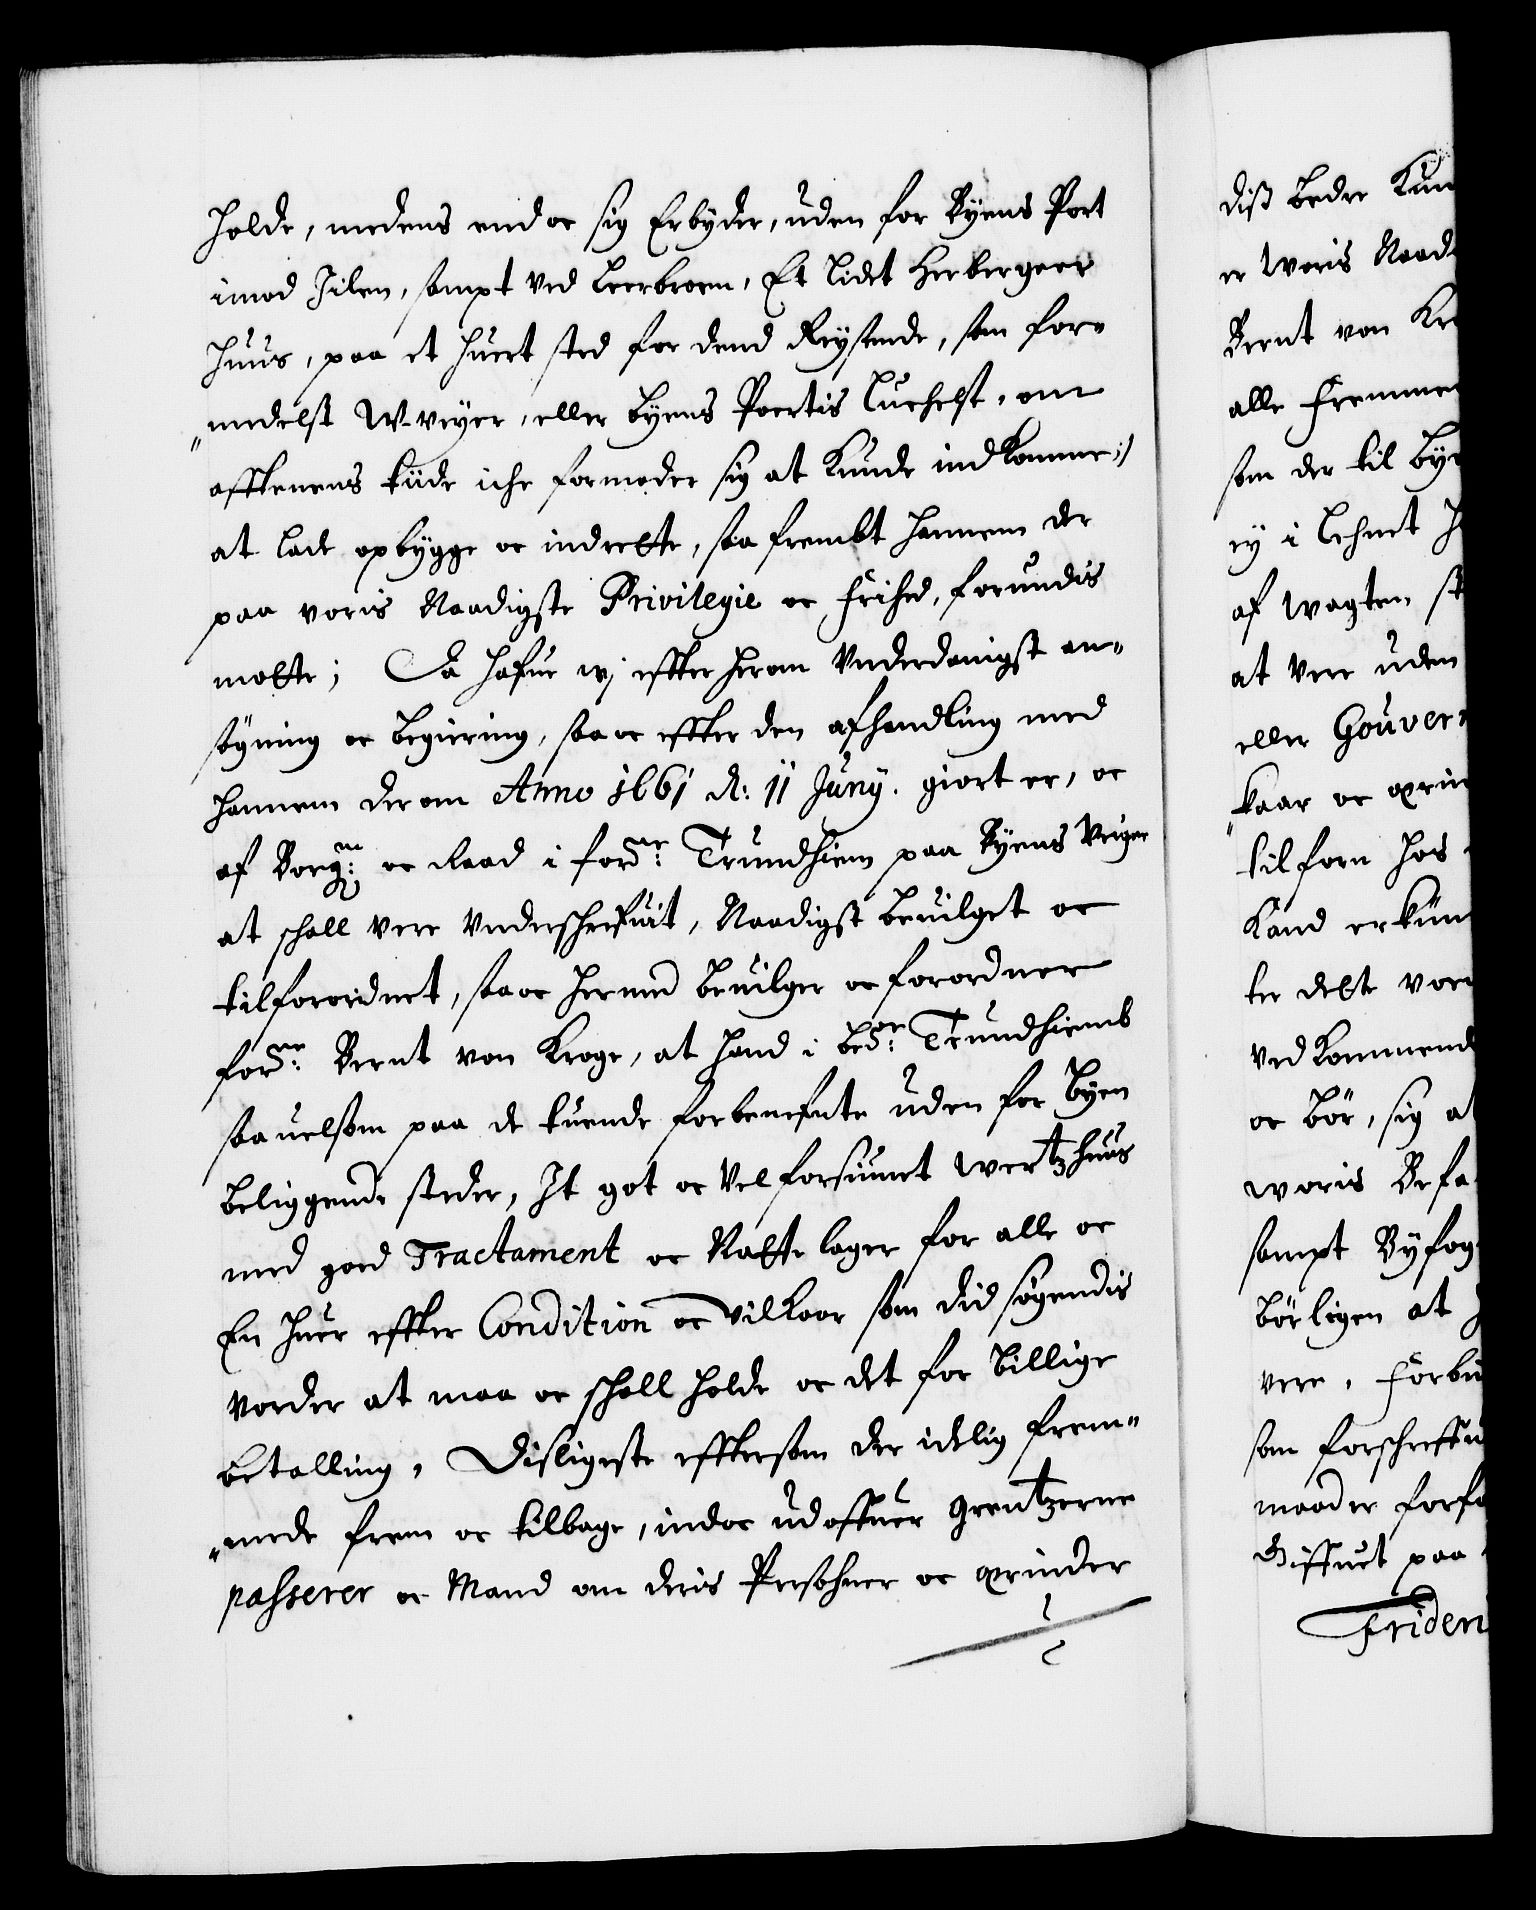 holde, medens end oc sig Erbyder, uden for Byens Port
imod Jilen, sampt ved Leerbroen, Et lidet Herbergeer
huus, paa et huert sted for dend Reysende, som for=
"medelst W-veyer, eller byens Poertis luchelse, om
afftenens tiide iche formoder sig at kunde ind komme :/
at lade opbygge oc indrette, saa frembt hannem der
paa voris Naadigste Privilegie oc Frihed, forundis
motte; Da hafue wj effter herom Underdanigst an=
søgning oc begiering, saa oc effter den afhandling med
hannem der om Anno 1661 d: 11 Juny. giort er, oc
af Borgm: oc Raad i fordne: Trundhiem paa Byens Veigne
at schall vere Underschrefuit, Naadigst beuilget oc
tilforordnet, saa oc hermed beuilger oc forordner
fordne: Bernt von Kroge, at hand i bedte: Trundhiemb
saauelsom paa de tuende forbenefnte uden for Byen
beliggende steder, It got oc Vel forsiunet Wertzhuus
med goed Tractament oc Natte lager for alle oc
En huer effter Condition oc vilkaar som did søgendis
vorder at maa oc schall holde oc det for billige
betalling, Disligeste efftersom der idelig frem=
"mede frem oc tilbage, ind oc ud offuer grentzerne
passerer oc Mand om deris Persohner oc erinder
diß bedre Kun
er Woris Naad
Bernt von Kr
alle Fremme
som der til bye
ey i Lehnet h
af wagten st
at vere uden
eller Gouver
kaar oc erin
tilforn hos
Kand erkün
ter dette vor
Vedkommend
oc bør, sig at
Woris Befa
sampt Byfog
børligen at h
vere, Forbu
som forschreffu
maader forfa
Giffuet paa
Frideri